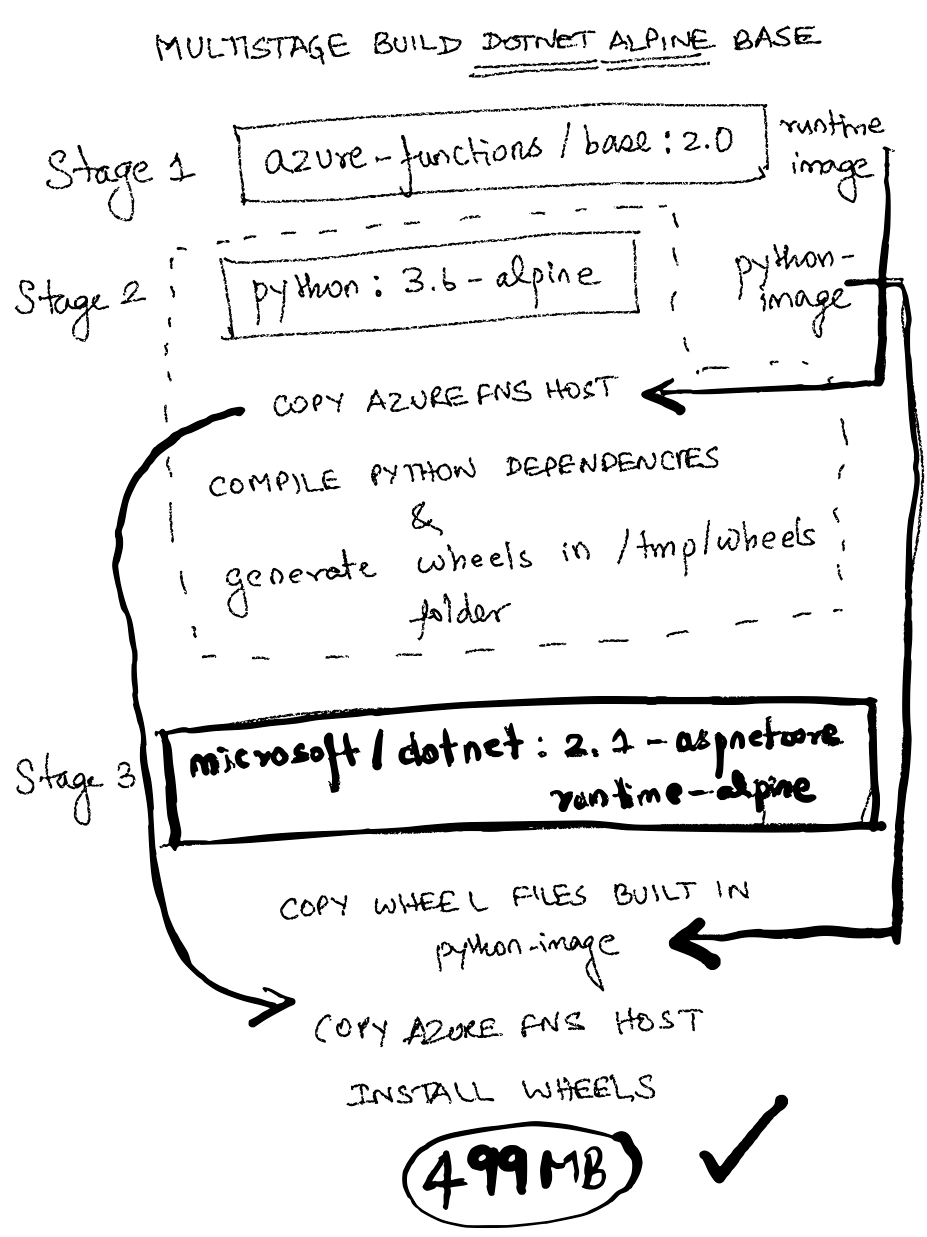 MULTISTAGE BUILD DOTNET ALPINE BASE
Stage 1
azure-functions/base:2.0
runtime
image
Stage 2
python:3.6-alpine
python-
image
COPY AZURE FNS HOST
COMPILE PYTHON DEPENDENCIES
&
generate wheels in /tmp/wheels
folder
Stage 3
microsoft/dotnet:2.1-aspnetcore
runtime-alpine
COPY WHEEL FILES BUILT IN
python-image
COPY AZURE FNS HOST
INSTALL WHEELS
499MB